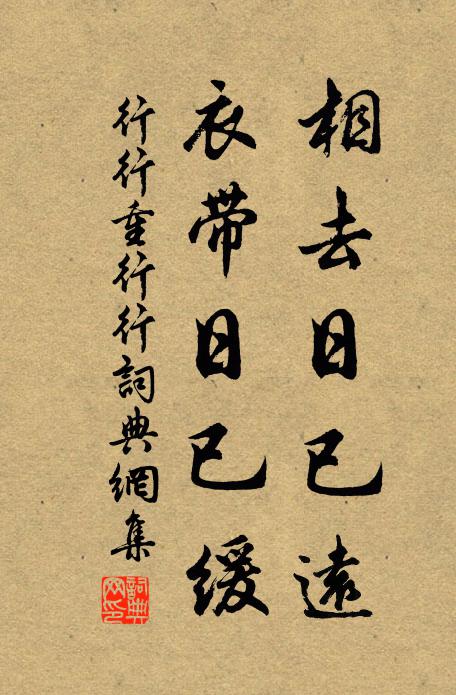 相去日已遠
衣帶日已緩
行行重行行詞典網集
詞典網印